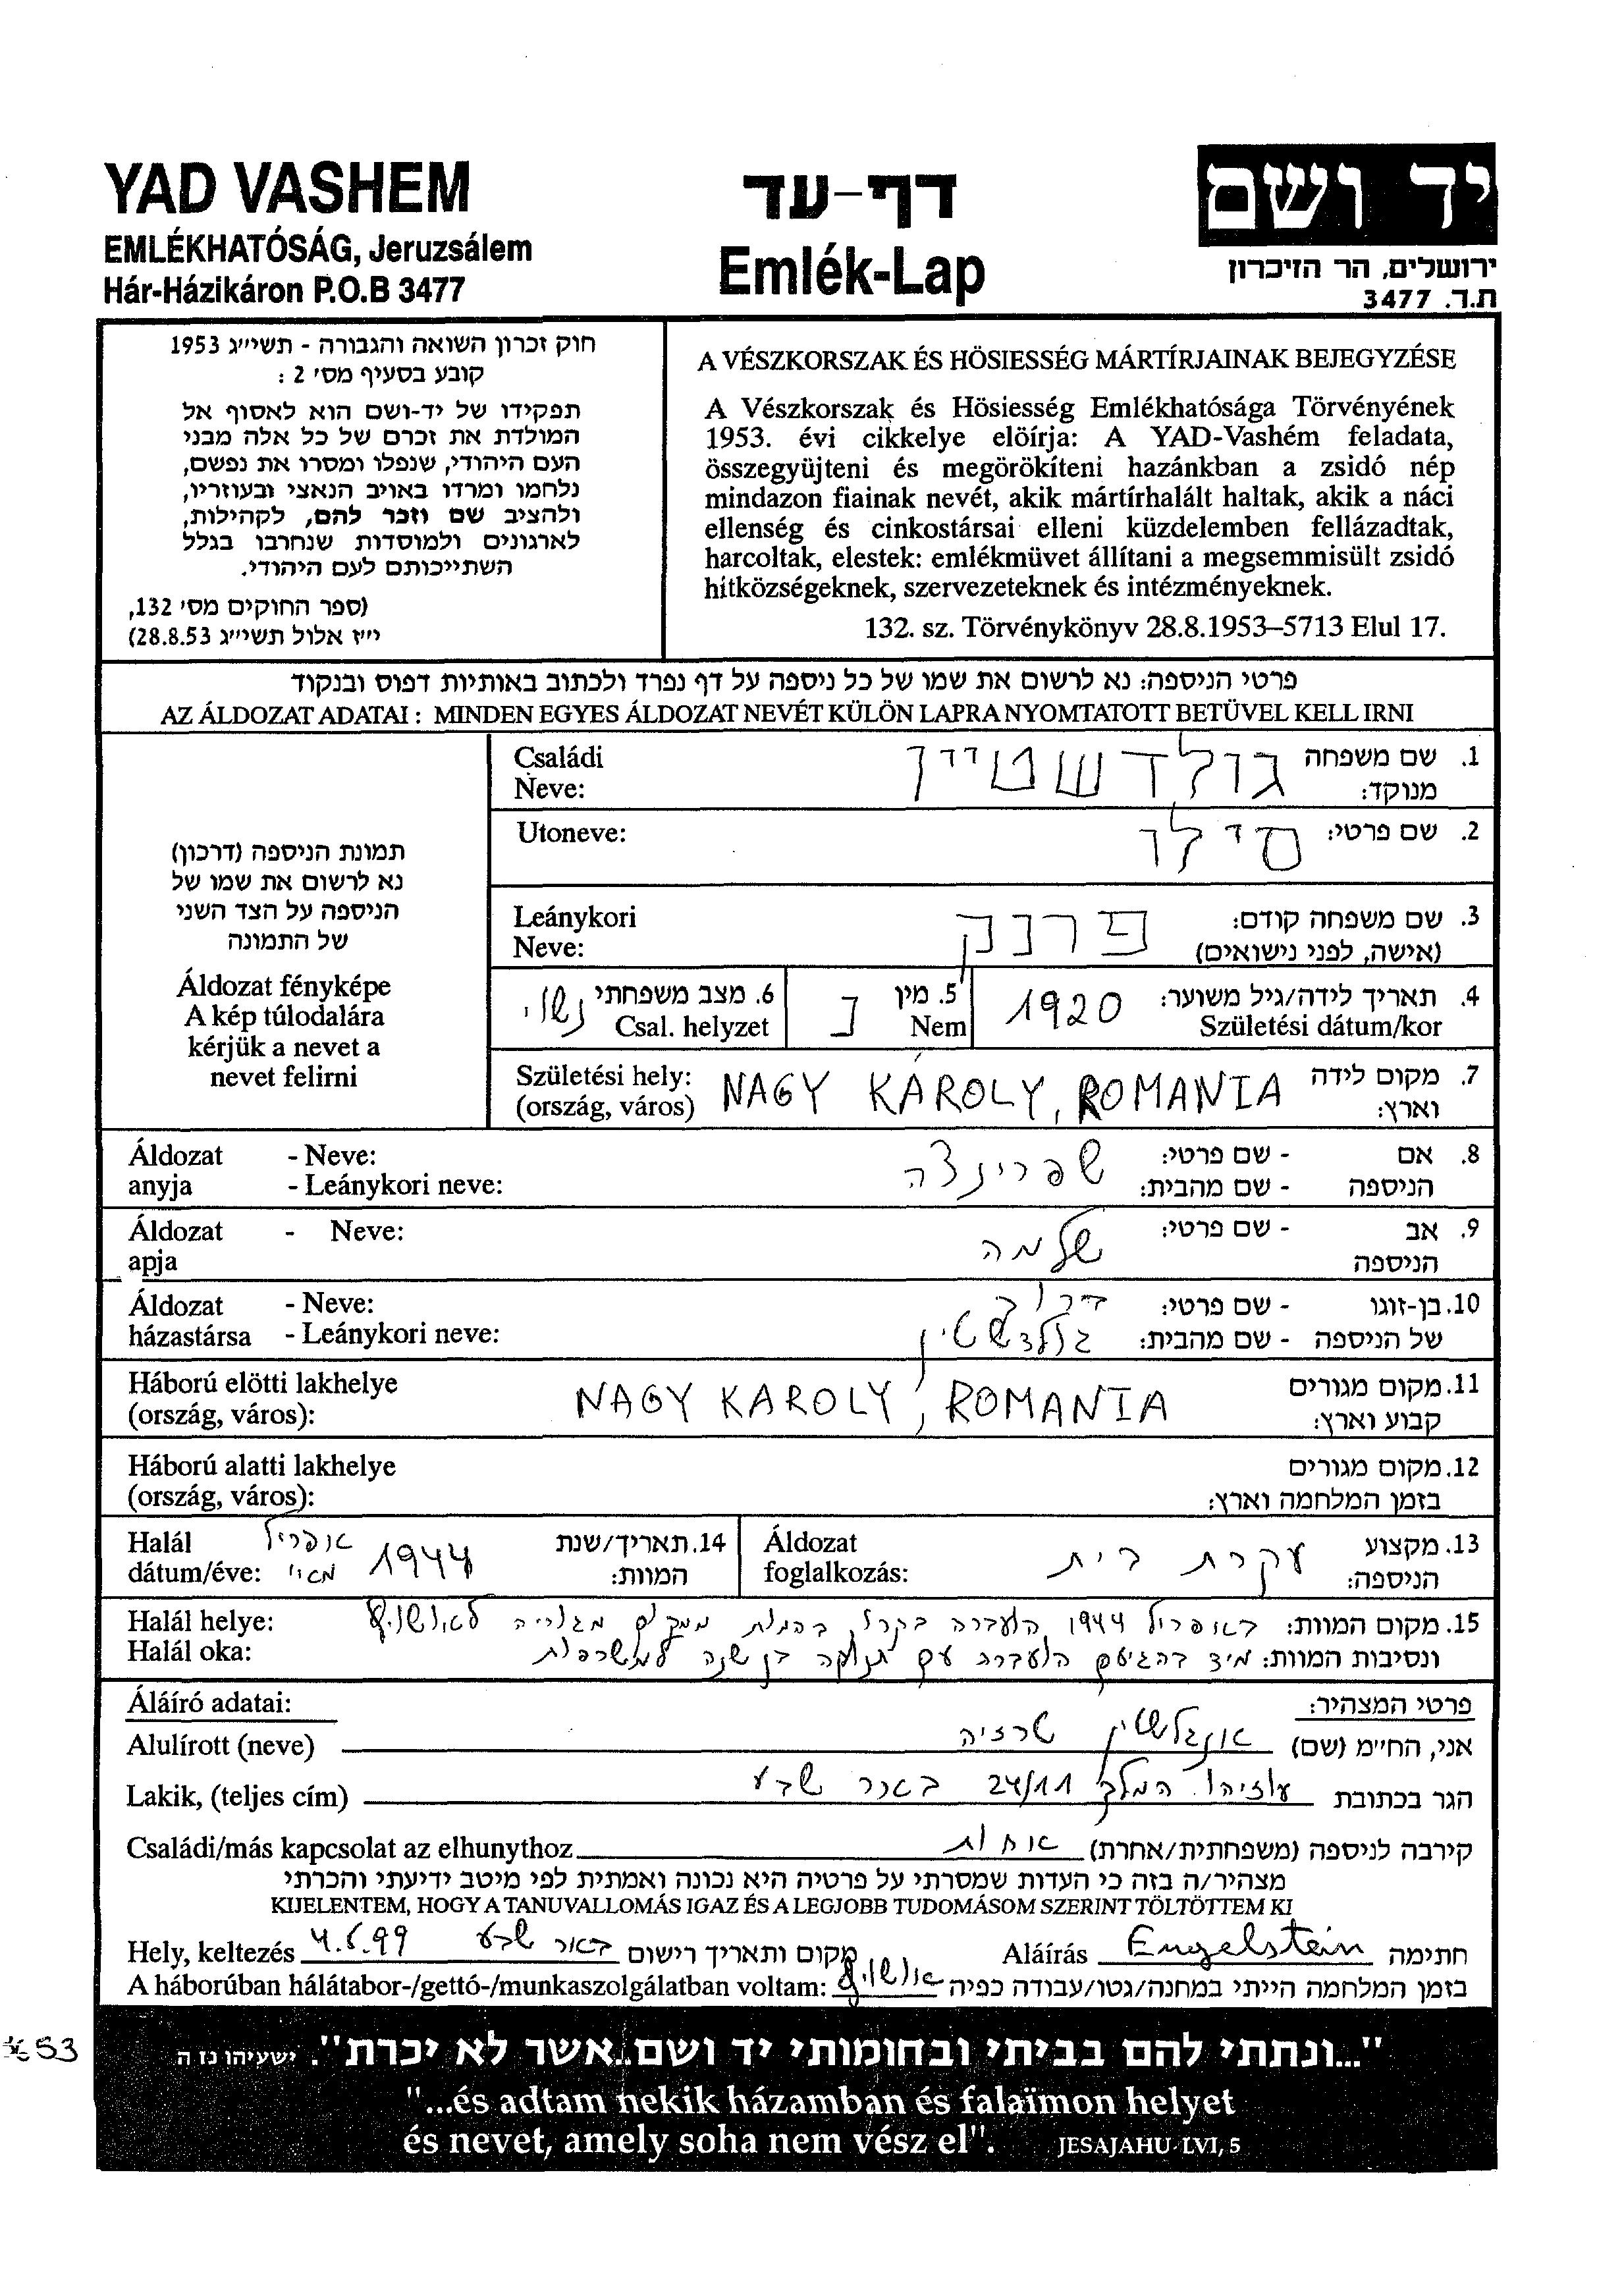 YAD VASHEM
EMLÉKHATÓSÁG, Jeruzsálem
Hár-Házikáron P.O.B 3477
דף-עד
Emlék-Lap
יד ושם
ירושלים, הר הזיכרון
ת.ד. 3477
חוק זכרון השואה והגבורה - תשי״ג 1953
קובע בסעיף מס׳ 2 :
תפקידו של יד-ושם הוא לאסוף אל
המולדת את זכרם של כל אלה מבני
העם היהודי, שנפלו ומסרו את נפשם,
נלחמו ומרדו באויב הנאצי ובעוזריו,
ולהציב שם וזכר להם, לקהילות,
לארגונים ולמוסדות שנחרבו בגלל
השתייכותם לעם היהודי.
(ספר החוקים מס׳ 132,
י״ז אלול תשי״ג 28.8.53)
A VÉSZKORSZAK ÉS HÖSIESSÉG MÁRTÍRJAINAK BEJEGYZÉSE
A Vészkorszak és Hösiesség Emlékhatósága Törvényének
1953. évi cikkelye elöírja: A YAD-Vashém feladata,
összegyüjteni és megörökíteni hazánkban a zsidó nép
mindazon fiainak nevét, akik mártírhalált haltak, akik a náci
ellenség és cinkostársai elleni küzdelemben fellázadtak,
harcoltak, elestek: emlékmüvet állítani a megsemmisült zsidó
hitközségeknek, szervezeteknek és intézményeknek.
132. sz. Törvénykönyv 28.8.1953–5713 Elul 17.
פרטי הניספה: נא לרשום את שמו של כל ניספה על דף נפרד ולכתוב באותיות דפוס ובנקוד
AZ ÁLDOZAT ADATAI : MINDEN EGYES ÁLDOZAT NEVÉT KÜLÖN LAPRA NYOMTATOTT BETÜVEL KELL IRNI
תמונת הניספה (דרכון)
נא לרשום את שמו של
הניספה על הצד השני
של התמונה
Áldozat fényképe
A kép túlodalára
kérjük a nevet a
nevet felirni
1. שם משפחה גולדשטיין Családi
מנוקד: Neve:
2. שם פרטי: סילו Utoneve:
3. שם משפחה קודם: פרנק Leánykori
(אישה, לפני נישואים) Neve:
4. תאריך לידה/גיל משוער: 1920 5. מין נ 6. מצב משפחתי נשוי
Születési dátum/kor Nem Csal. helyzet
7. מקום לידה NAGY KÁROLY, ROMANIA Születési hely:
וארץ: (ország, város)
8. אם - שם פרטי: שפרינצה Áldozat - Neve:
הניספה - שם מהבית: anyja - Leánykori neve:
9. אב - שם פרטי: שלמה Áldozat - Neve:
הניספה apja
10. בן-זוגו - שם פרטי: Áldozat - Neve:
של הניספה - שם מהבית: גולדשטיין házastársa - Leánykori neve:
11. מקום מגורים NAGY KAROLY, ROMANIA Háború elötti lakhelye
קבוע וארץ: (ország, város):
12. מקום מגורים Háború alatti lakhelye
בזמן המלחמה וארץ: (ország, város):
13. מקצוע עקרת בית Áldozat
הניספה: foglalkozás:
14. תאריך/שנת אפריל Halál
המוות: 1944 מאי dátum/éve:
15. מקום המוות: באפריל 1944 הועברה בקרון בהמות ממקום מגוריה לאושוויץ Halál helye:
ונסיבות המוות: מיד בהגיעם הועברה עם תנוקה בן שנה למשרפות Halál oka:
פרטי המצהיר: Áláíró adatai:
אני, הח״מ (שם) אנגלשטיין שרציה Alulírott (neve)
הגר בכתובת עוזיהו המלך 24/11 באר שבע Lakik, (teljes cím)
קירבה לניספה (משפחתית/אחרת) אחות Családi/más kapcsolat az elhunythoz
מצהיר/ה בזה כי העדות שמסרתי על פרטיה היא נכונה ואמתית לפי מיטב ידיעתי והכרתי
KIJELENTEM, HOGY A TANUVALLOMÁS IGAZ ÉS A LEGJOBB TUDOMÁSOM SZERINT TÖLTÖTTEM KI
חתימה Engelstein Aláírás מקום ותאריך רישום באר שבע 4.5.99 Hely, keltezés
בזמן המלחמה הייתי במחנה/גטו/עבודה כפיה אושוויץ A háborúban hálátabor-/gettó-/munkaszolgálatban voltam:
"...ונתתי להם בביתי ובחומותי יד ושם..אשר לא יכרת". ישעיהו נו ה
"...és adtam nekik házamban és falaïmon helyet
és nevet, amely soha nem vész el". JESAJAHU LVI, 5
53